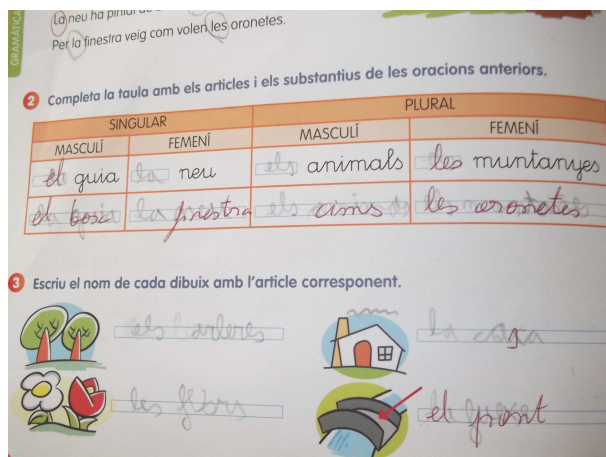 GRAMÀTICA
La neu ha pintat de
Per la finestra veig com volen les oronetes.
2 Completa la taula amb els articles i els substantius de les oracions anteriors.
SINGULAR PLURAL
MASCULÍ FEMENÍ MASCULÍ FEMENÍ
el guia la neu els animals les muntanyes
el bosc la finestra els cims les oronetes
3 Escriu el nom de cada dibuix amb l'article corresponent.
els arbres la casa
les flors el pont